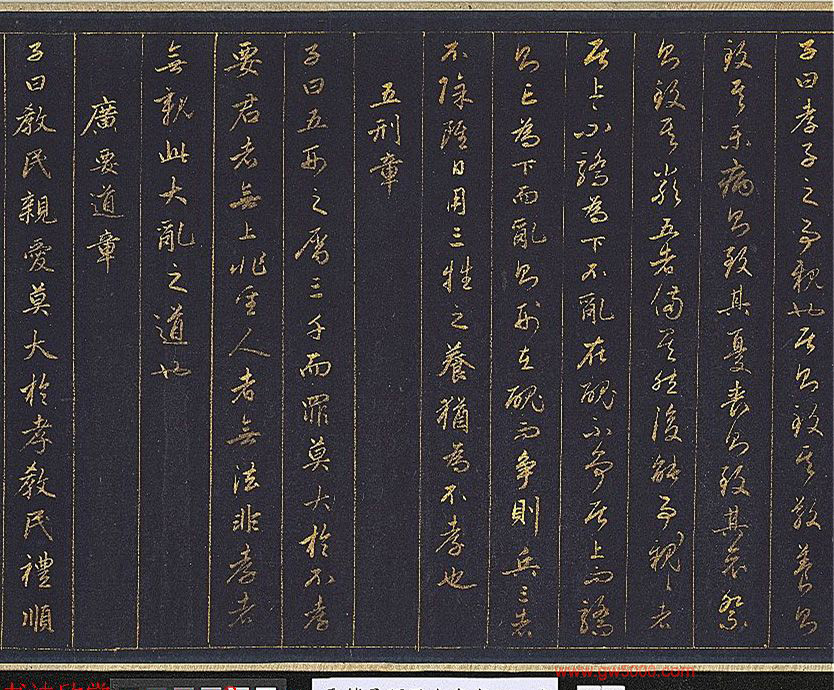 子曰孝子之事親也居則致其敬養則
致其樂病則致其憂喪則致其哀祭
則致其嚴五者備矣然後能事親〻者
居上不驕為下不亂在醜不争居上而驕
則亡為下而亂則刑在醜而争則兵三者
不除雖日用三牲之養猶為不孝也
五刑章
子曰五刑之屬三千而罪莫大於不孝
要君者無上非聖人者無法非孝者
無親此大亂之道也
廣要道章
子曰教民親愛莫大於孝教民禮順
www.gw5000.com